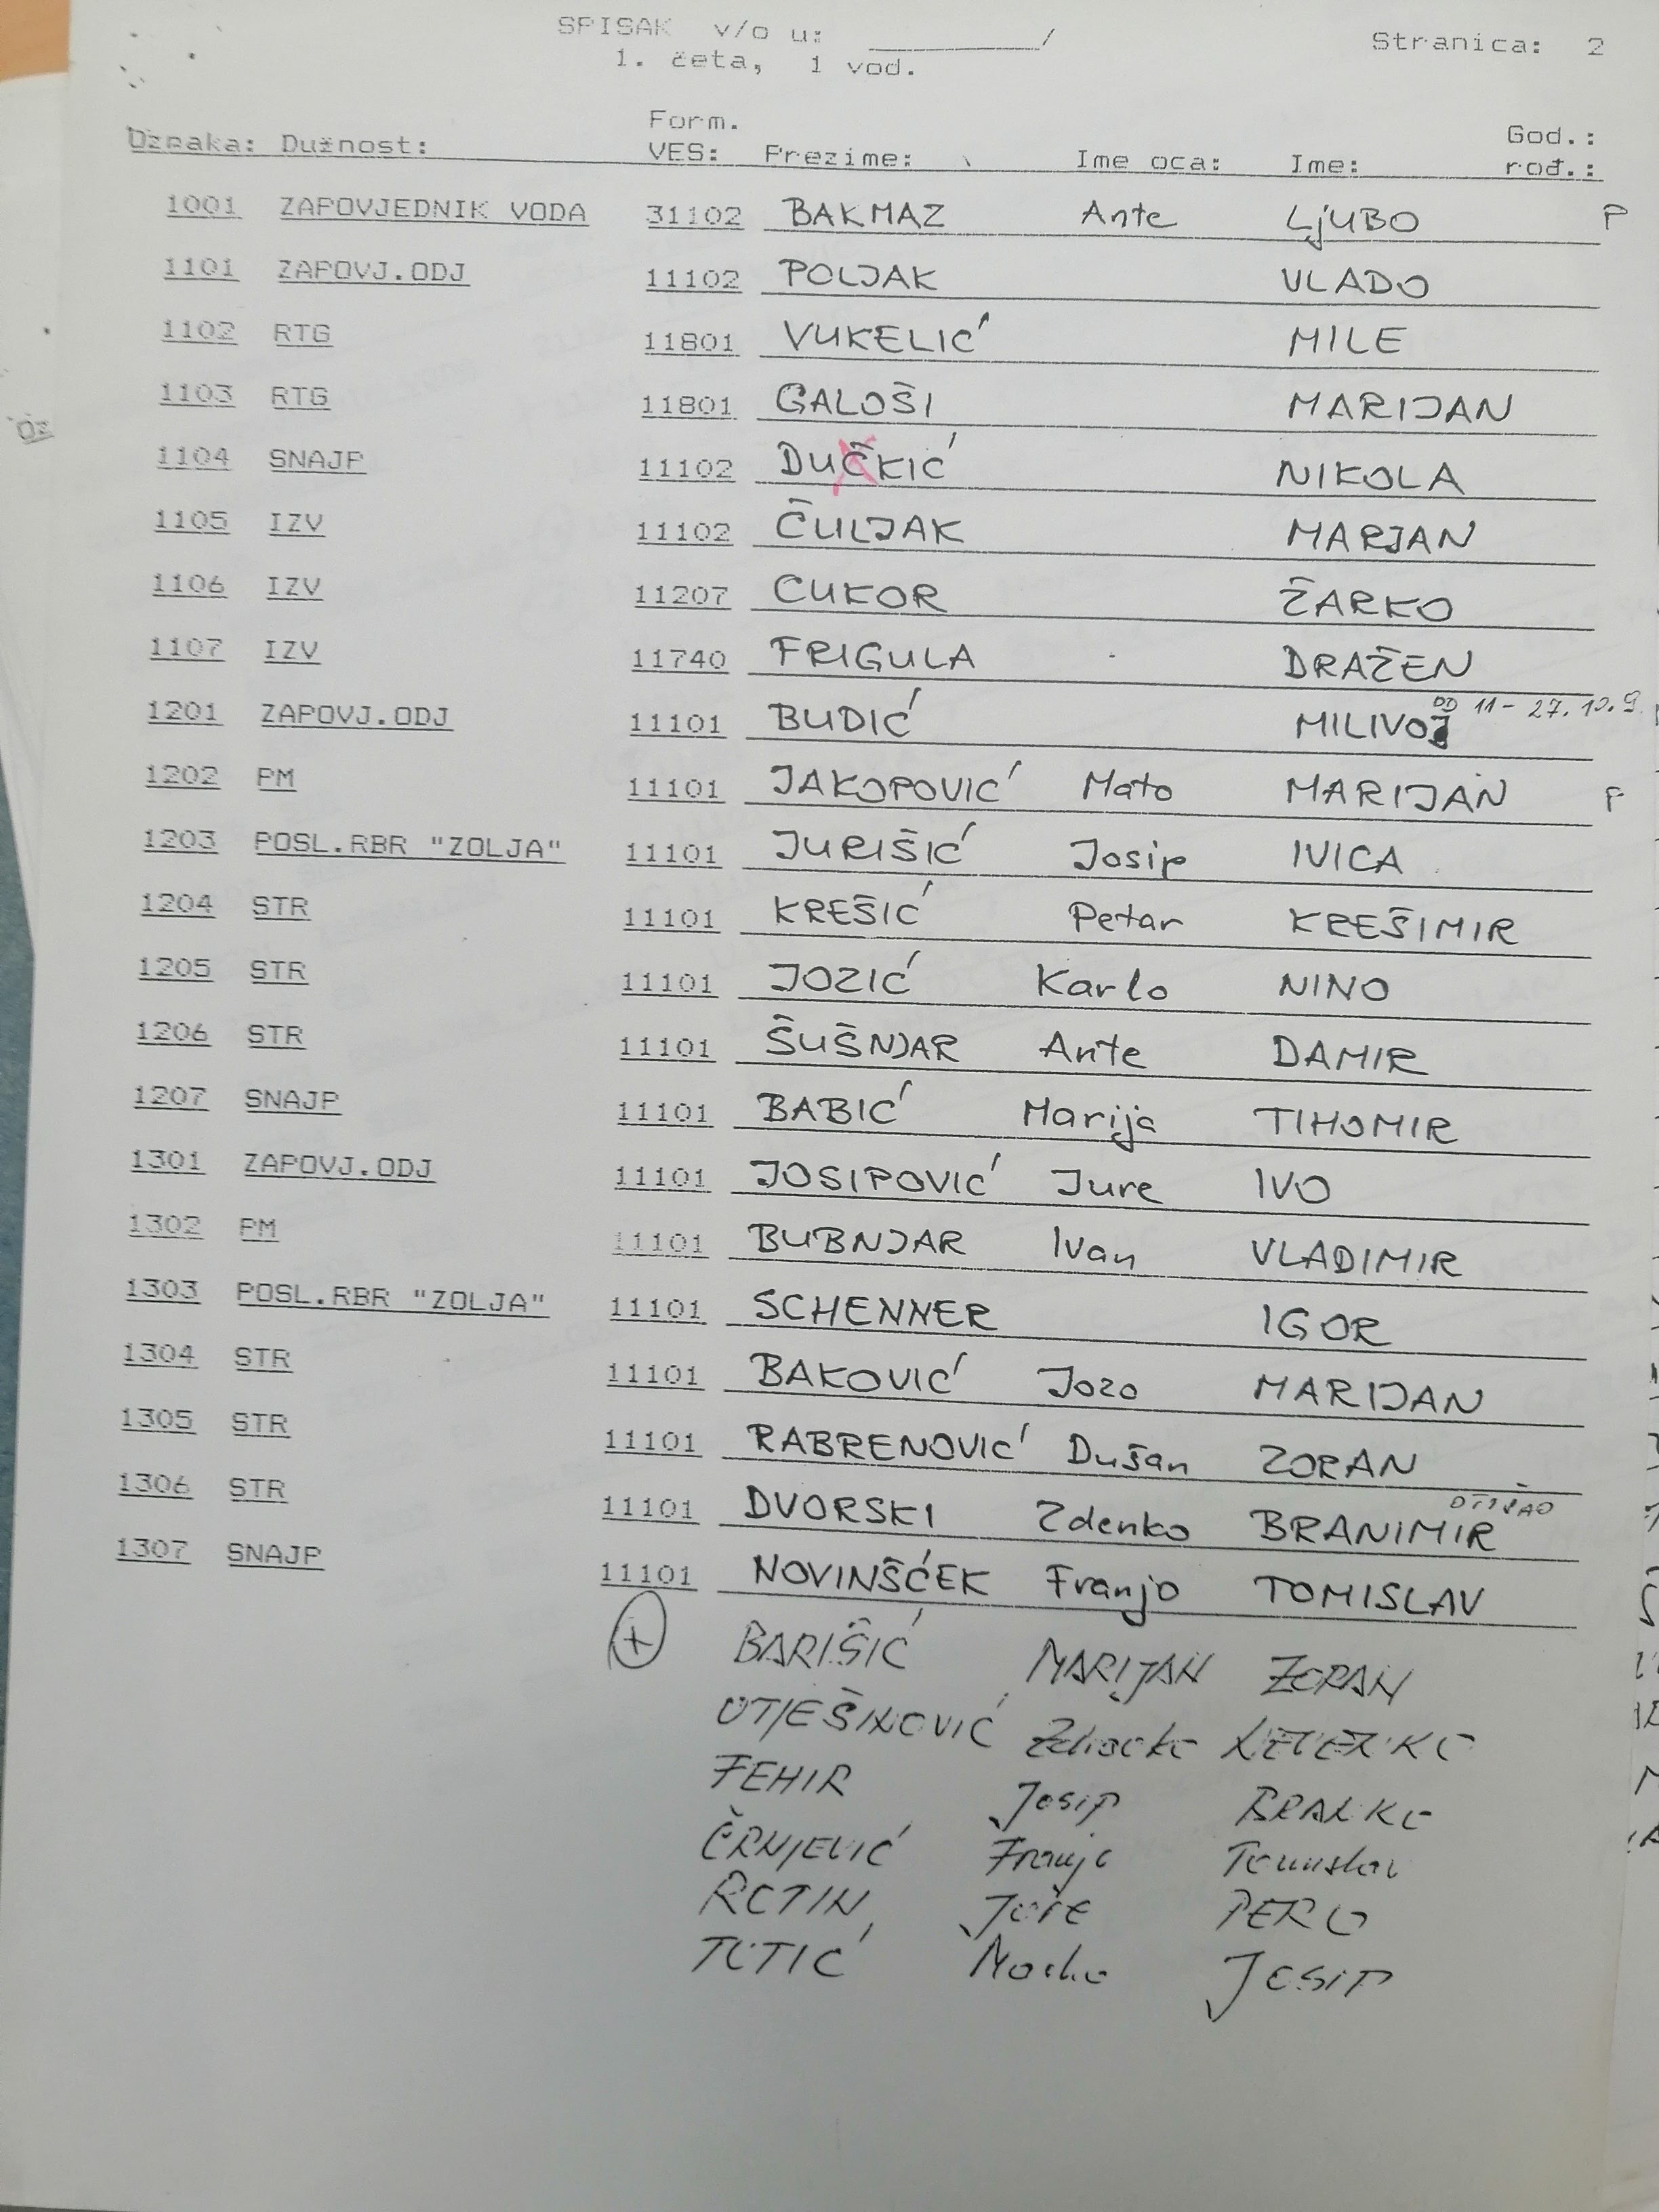 SPISAK v/o u: __________/ Stranica: 2
1. četa, 1 vod.
Form. God.:
Oznaka: Dužnost: VES: Prezime: Ime oca: Ime: rođ.:
1001 ZAPOVJEDNIK VODA 31102 BAKMAZ Ante LjUBO P
1101 ZAPOVJ.ODJ 11102 POLJAK VLADO
1102 RTG 11801 VUKELIĆ MILE
1103 RTG 11801 GALOŠI MARIJAN
1104 SNAJP 11102 DUČKIĆ NIKOLA
1105 IZV 11102 ČULJAK MARJAN
1106 IZV 11207 CUKOR ŽARKO
1107 IZV 11740 FRIGULA DRAŽEN
OD 11 - 27.10.9
1201 ZAPOVJ.ODJ 11101 BUDIĆ MILIVOJ
1202 PM 11101 JAKOPOVIĆ Mato MARIJAN P
1203 POSL.RBR "ZOLJA" 11101 JURIŠIĆ Josip IVICA
1204 STR 11101 KREŠIĆ Petar KREŠIMIR
1205 STR 11101 JOZIĆ Karlo NINO
1206 STR 11101 ŠUŠNJAR Ante DAMIR
1207 SNAJP 11101 BABIĆ Marija TIHOMIR
1301 ZAPOVJ.ODJ 11101 JOSIPOVIĆ Jure IVO
1302 PM 11101 BUBNJAR Ivan VLADIMIR
1303 POSL.RBR "ZOLJA" 11101 SCHENNER IGOR
1304 STR 11101 BAKOVIĆ Jozo MARIJAN
1305 STR 11101 RABRENOVIĆ Dušan ZORAN
OTIŠAO
1306 STR 11101 DVORSKI Zdenko BRANIMIR
1307 SNAJP 11101 NOVINŠĆEK Franjo TOMISLAV
+ BARIŠIĆ MARIJAN ZORAN
UTJEŠINOVIĆ
FEHIR Josip BRANKO
ČRNJEVIĆ Franjo Tomislav
ROTIM Jure PERO
TOTIĆ JOSIP